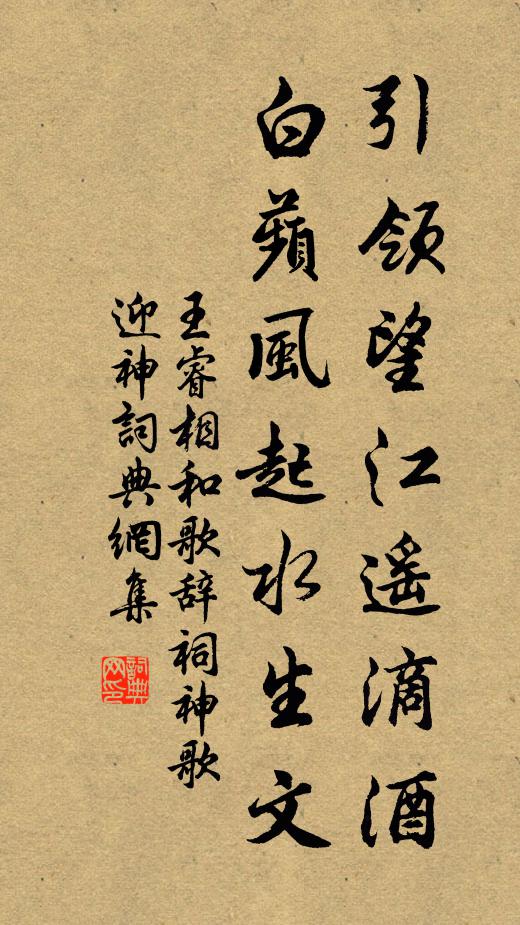 引領望江遥滴酒
白蘋風起水生文
王睿相和歌辞祠神歌
迎神詞典網集
詞典网印